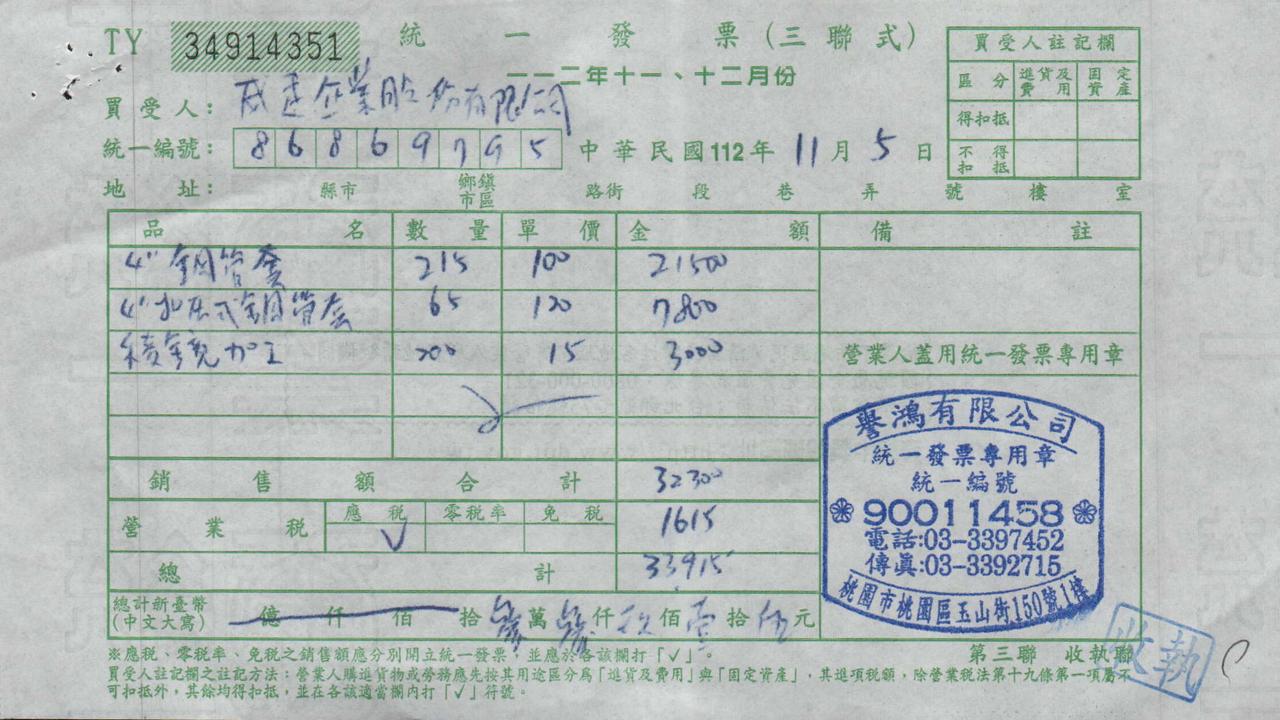 TY 34914351 統一發票(三聯式)
一一二年十一、十二月份
買受人註記欄
區分 進貨及費用 固定資產
得扣抵
不得扣抵
買受人: 企業股份有限公司
統一編號: 86869795 中華民國112年11月5日
地址: 縣市 鄉鎮市區 路街 段 巷 弄 號 樓 室
品名 數量 單價 金額 備註
4" 鋼管套 215 100 21500
4" 式鋼管套 65 120 7800
加工 200 15 3000
營業人蓋用統一發票專用章
銷售額合計 32300
營業稅 應稅 V 零稅率 免稅 1615
總計 33915
總計新臺幣(中文大寫) 億仟佰拾參萬參仟玖佰壹拾伍元
譽鴻有限公司
統一發票專用章
統一編號
90011458
電話:03-3397452
傳眞:03-3392715
桃園市桃園區玉山街150號1樓
※應稅、零稅率、免稅之銷售額應分別開立統一發票,並應於各該欄打「V」。
第三聯 收執聯
買受人註記欄之註記方法:營業人購進貨物或勞務應先按其用途區分爲「進貨及費用」與「固定資產」,其進項稅額,除營業稅法第十九條第一項屬不
可扣抵外,其餘均得扣抵,並在各該適當欄內打「V」符號。
收執